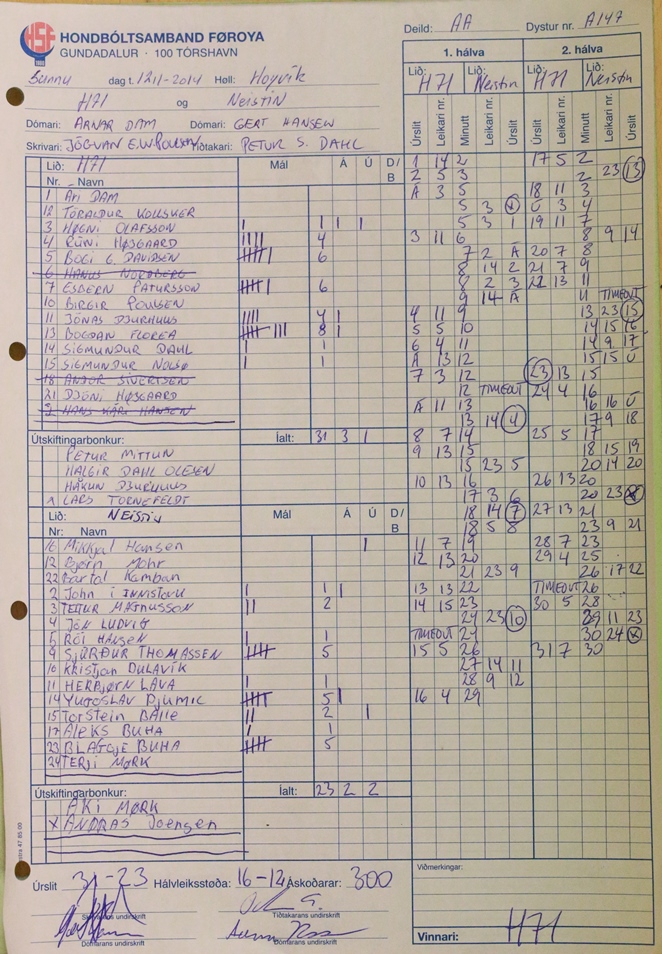 HSF
HONDBÓLTSAMBAND FØROYA
GUNDADALUR · 100 TÓRSHAVN
Deild: AA Dystur nr. A147
Sunnu dag t. 12/1-2014 Høll: Hoyvík
H71 og Neistin
Dómari: ARNAR DAM Dómari: GERT HANSEN
Skrivari: JÓGVAN E.W. Poulsen Tíðtakari: PETUR S. DAHL
1. hálva 2. hálva
Lið: H71 Neistin Lið: H71 Neistin
Úrslit Leikari nr. Minutt Leikari nr. Úrslit Úrslit Leikari nr. Minutt Leikari nr. Úrslit
Lið: H71 Mál Á Ú D/B
Nr. Navn
1 Ári DAM
12 TÓRALDUR
3 HØGNI OLAFSSON 1 1 1
4 RÚNI HØJGAARD 4
5 BOGI G. DAVIDSEN 6
6 HANUS NORÐBERG
7 ESBERN PATURSSON 6
10 BIRGIR POULSEN
11 JÓNAS DJURHUUS 4 1
13 BOGDAN FLOREA 8 1
14 SIGMUNDUR DAHL 1
15 SIGMUNDUR NOLSØ 1
18 ANDUR SIVERTSEN
21 DJÓNI HØJGAARD
2 HANS KÁRI HANSEN
Útskiftingarbonkur: Íalt: 31 3 1
PETUR MITTUN
HALGIR DAHL OLESEN
HÁKUN DJURHUUS
LARS TORNEFELDT
Lið: NEISTIN Mál Á Ú D/B
Nr: Navn
16 Mikkjal Hansen 1
12 Bjørn Mohr
22 Bartal Kamban
2 John i Innistovu 1 1
3 TEITUR MAGNUSSON 2
4 JÓN LUDVIG
5 RÓI HANSEN 1
9 SJÚRÐUR THOMASSEN 5
10 Kristjan DULAVÍK
11 HERBJØRN LAVA 1
14 YUGOSLAV Djumic 5 1
15 Torstein BAlle 2 1
17 Aleks BUHA 1
23 BLAGOJE BUHA 5
24 TERJI MØRK
Útskiftingarbonkur: Íalt: 23 2 2
AKI MØRK
x ANDRAS Joensen
1 14 2 17 5 2
2 5 3 2 23 13
Á 3 5 18 11 3
5 3 x Ú 3 4
5 3 19 11 7
3 11 6 8 9 14
7 2 Á 20 7 8
8 14 2 21 7 9
8 2 3 22 13 11
9 14 Á 11 TIMEOUT
4 11 9 13 23 15
5 5 10 14 15 16
6 4 11 14 9 17
Á 13 12 15 15 Ú
7 3 12 23 13 15
12 TIMEOUT 24 4 16
Á 11 13 16 16 Ú
13 14 4 17 9 18
8 7 14 25 5 17
9 13 15 18 15 19
15 23 5 20 14 20
10 13 16 26 13 20
17 3 6 20 23 x
18 14 7 27 13 21
18 5 8 23 9 21
11 7 19 28 7 23
12 13 20 29 4 25
21 23 9 26 17 22
13 13 22 TIMEOUT 26
14 15 23 30 5 28
24 23 10 29 11 23
TIMEOUT 24 30 24 x
15 5 26 31 7 30
27 14 11
28 9 12
16 4 29
Úrslit 31-23 Hálvleiksstøða: 16-12 Áskoðarar: 300
Skrivarans undirskrift Tíðtakarans undirskrift
Dómarans undirskrift Dómarans undirskrift
Viðmerkingar:
Vinnari: H71